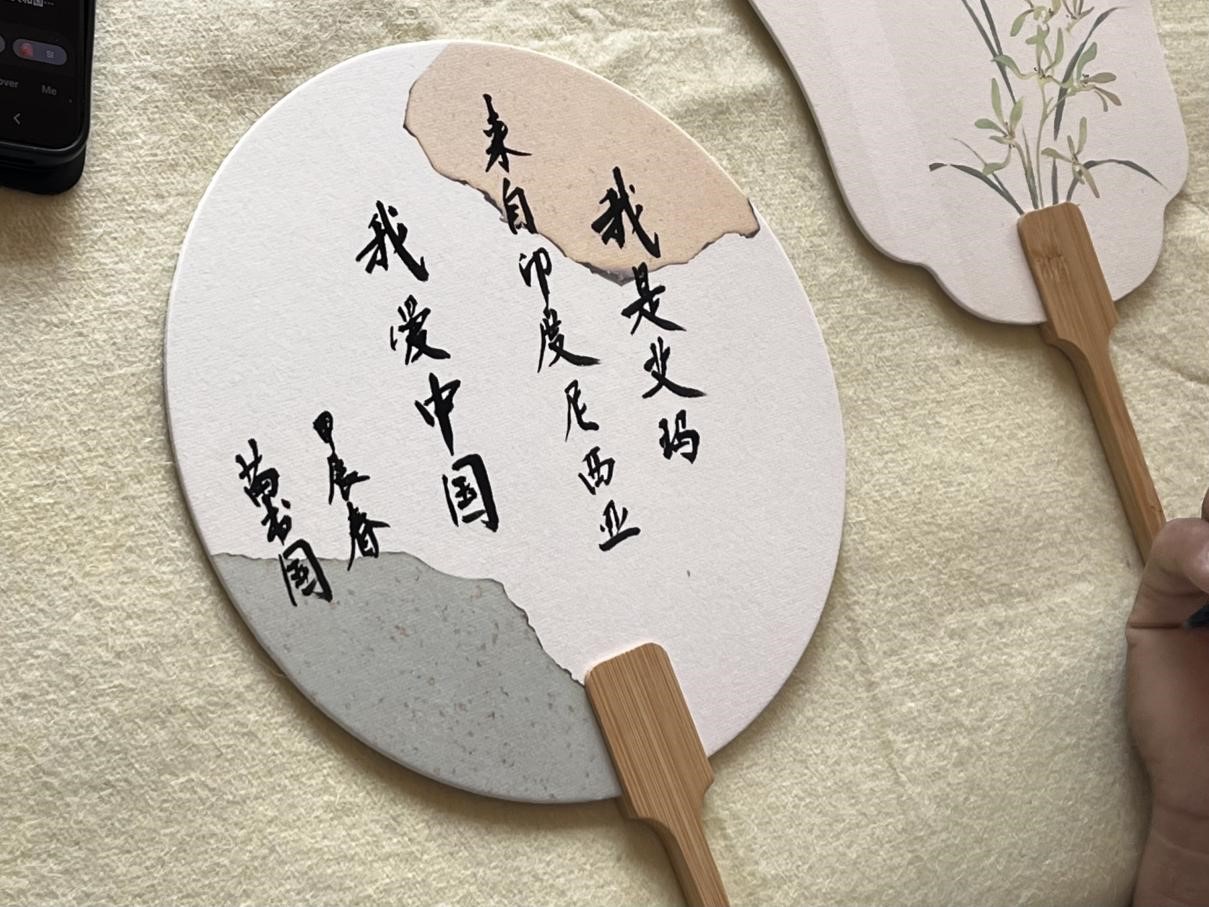 我是艾玛
来自印度尼西亚
我爱中国
甲辰春
苗书国
over
Me